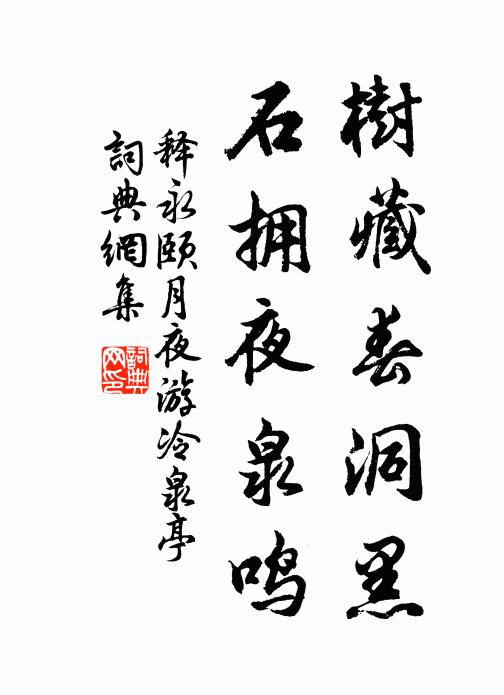 樹藏春洞黑
石拥夜泉鸣
释永颐月夜游冷泉亭
詞典網集
詞典网印